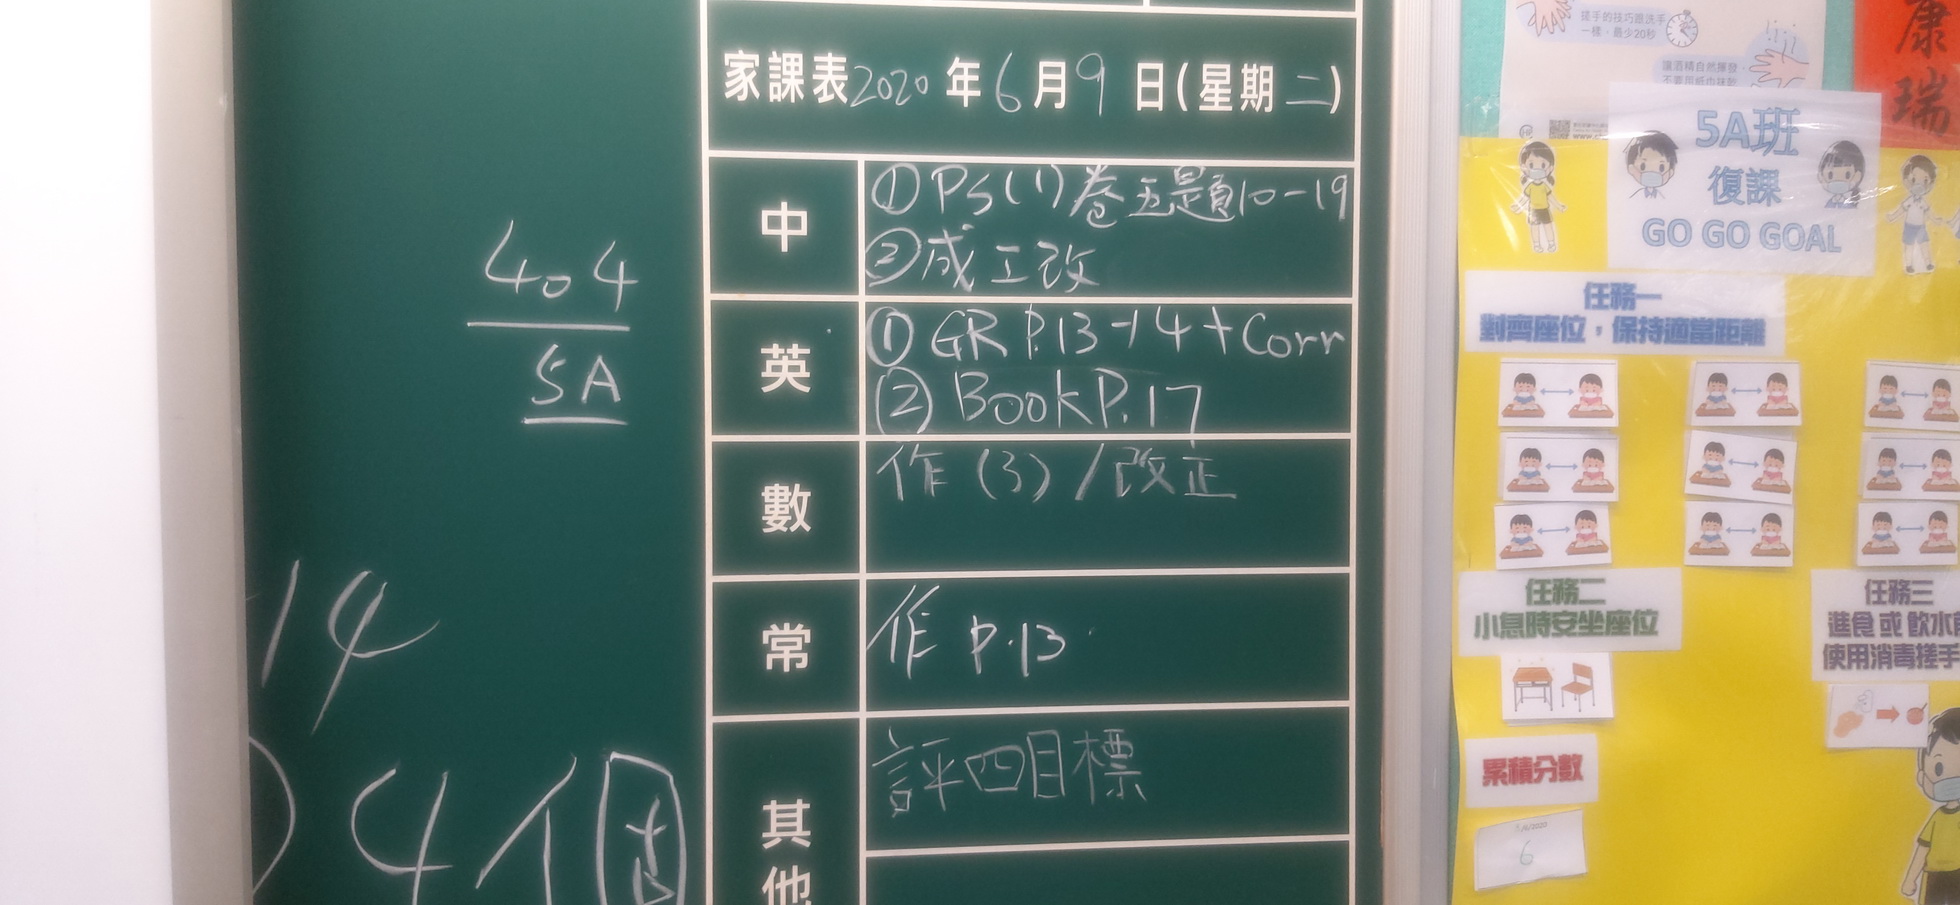 家課表2020年6月9日(星期二)
中
①PS(1)卷五題10-19
②成工改
英
① GR P.13-14+Corr
② Book P.17
數
作(3)/改正
常
作 P.13
其他
評四目標
404
5A
14
4個
搓手的技巧跟洗手
一樣，最少20秒
讓酒精自然揮發，
不要用紙巾抹乾
康
瑞
5A班
復課
GO GO GOAL
任務一
對齊座位，保持適當距離
任務二
小息時安坐座位
任務三
進食或飲水前
使用消毒搓手
累積分數
6